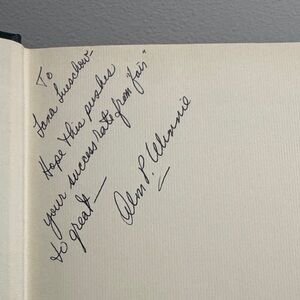 To
Lana Lueschow -
Hope this pushes
your success rate from "fair"
to great -
Alm P. Winnie